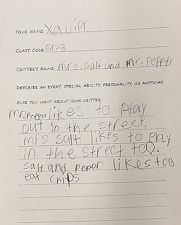 YOUR NAME: Xavier
CLASS CODE: Gr-3
CRITTER'S NAME: mrs. salt and mr. Pepper
DESCRIBE AN EVENT, SPECIAL ABILITY, PERSONALITY, OR ANYTHING
ELSE YOU WANT ABOUT YOUR CRITTER:
mr. Pepper likes to play
out in the street.
mrs salt likes to play
in the street too.
salt and peper likes too
eat chips